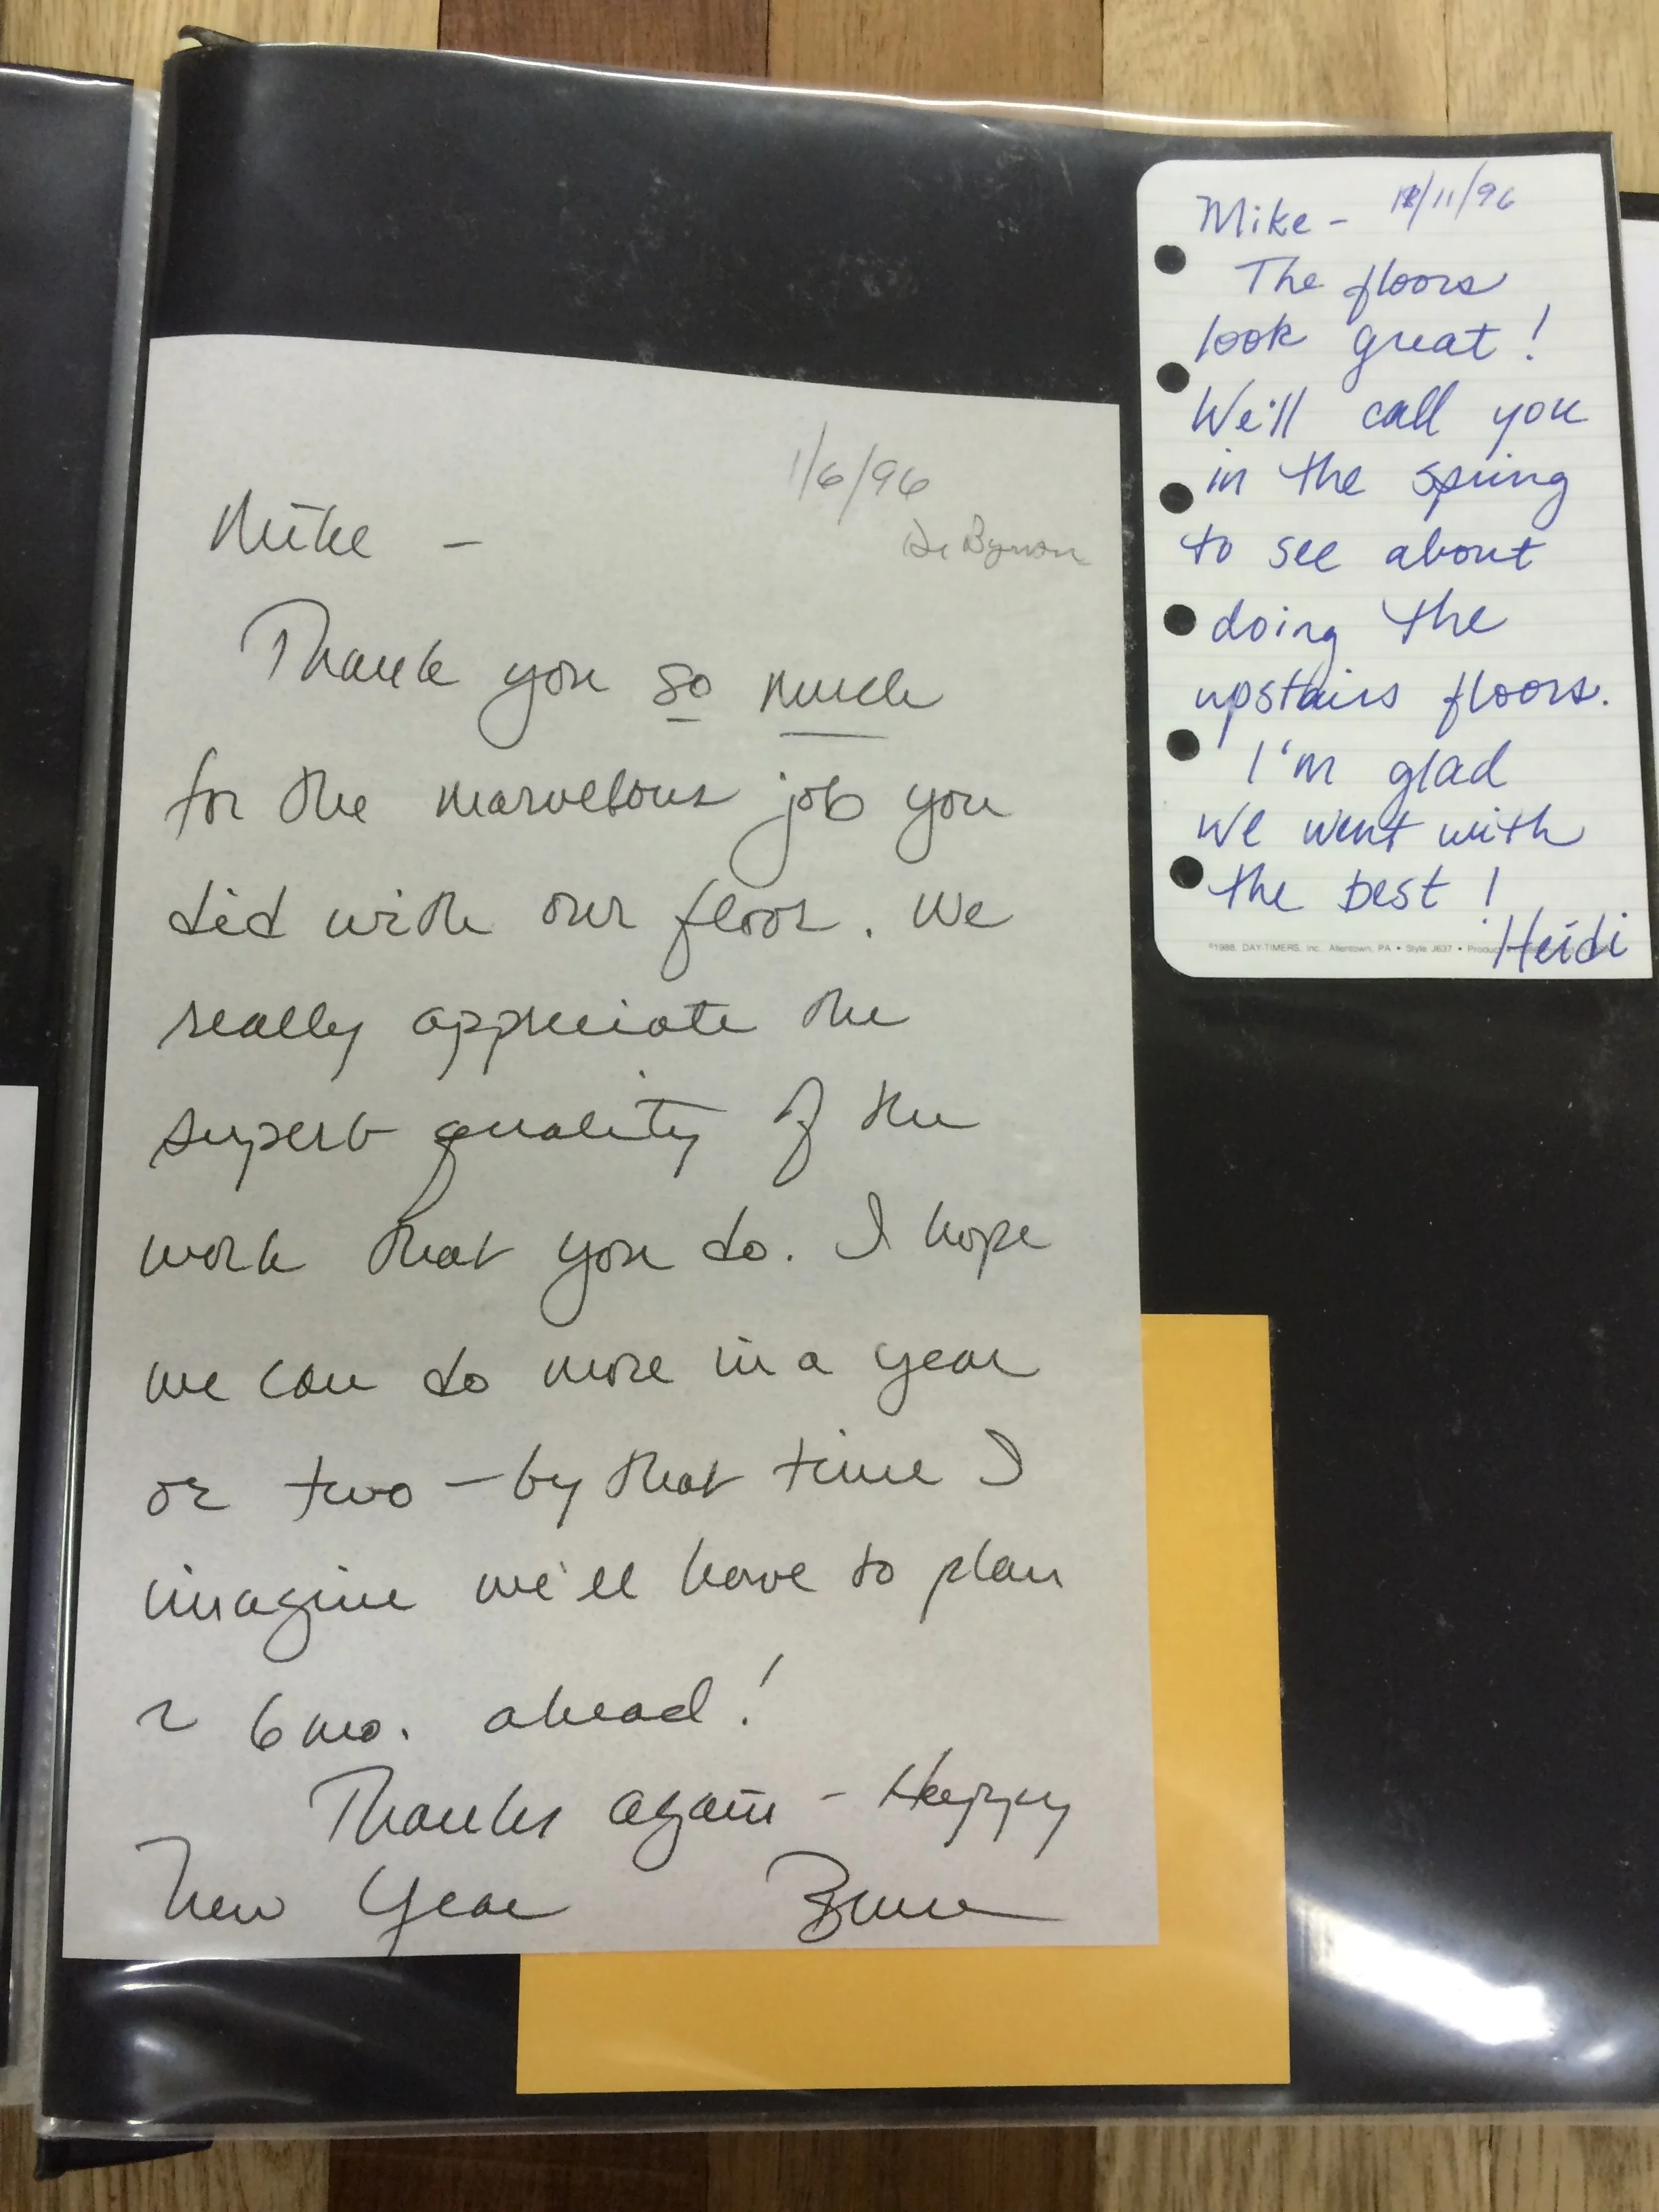 Mike -
1/6/96
Thank you so much
for the marvelous job you
did with our floor. We
really appreciate the
superb quality of the
work that you do. I hope
we can do more in a year
or two - by that time I
imagine we'll have to plan
~ 6 mo. ahead!
Thanks again - Happy
New Year
Mike - /11/96
The floors
look great!
We'll call you
in the spring
to see about
doing the
upstairs floors.
I'm glad
we went with
the best!
Heidi
©1988. DAY-TIMERS, Inc. Allentown, PA • Style J637 •